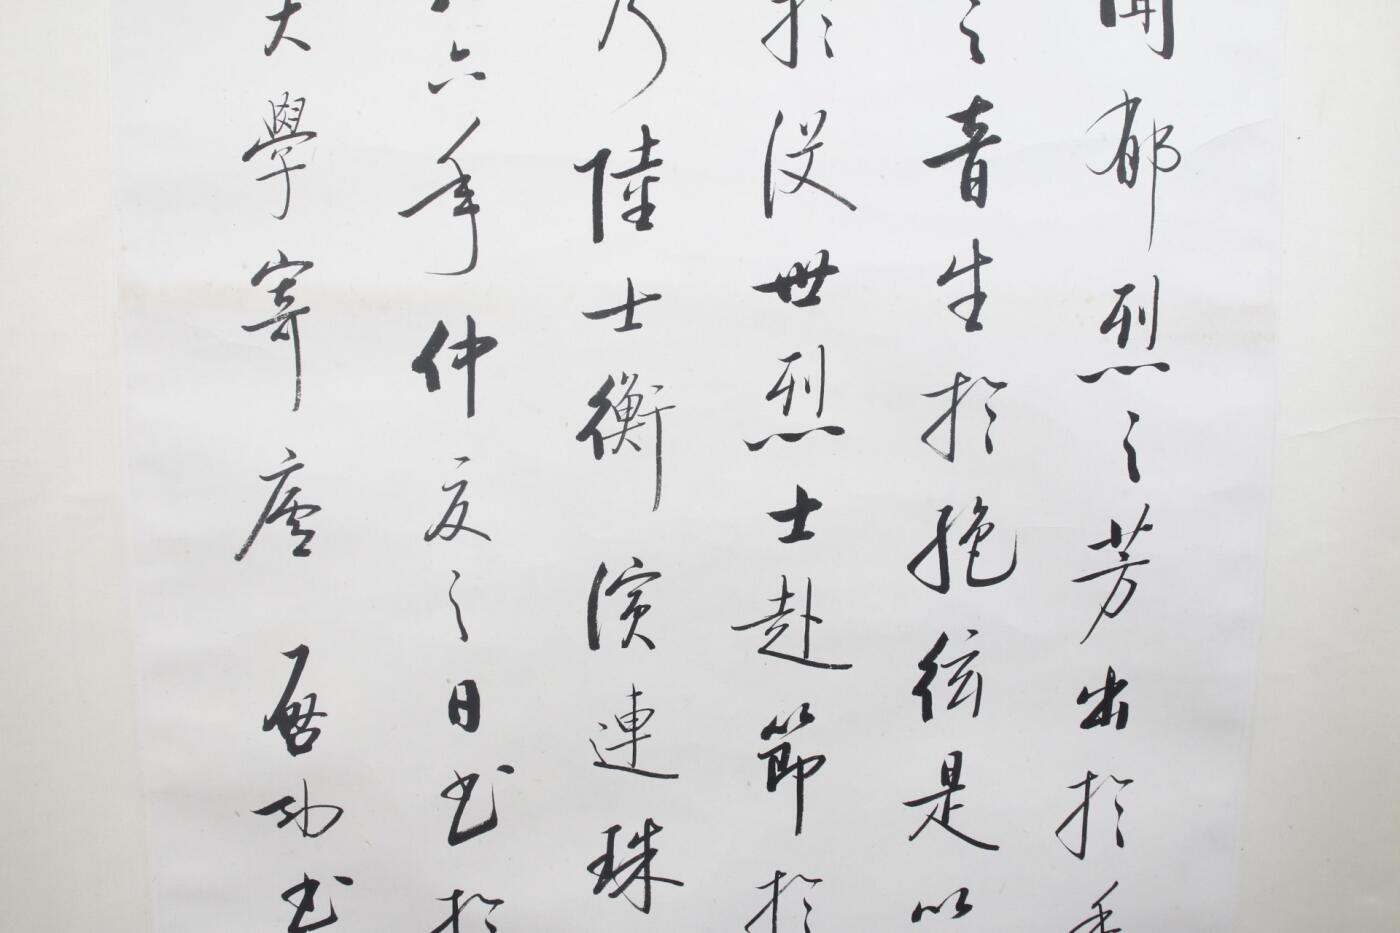 聞郁烈之芳出於
之音生於絕絃是以
於没世烈士赴節於
陸士衡演連珠
六年仲夏之日書於
大學寄廬 啟功書